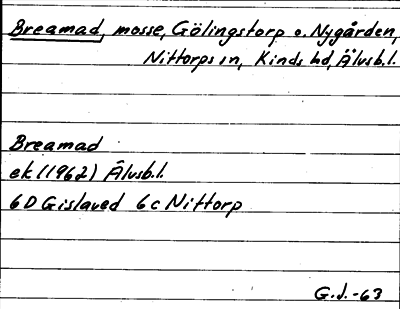 Breamad, mosse, Gölingstorp o. Nygården,
Nittorps sn, Kinds hd, Älvsb.l.
Breamad
ek (1962) Älvsb.l.
6D Gislaved 6c Nittorp
G.J.-63